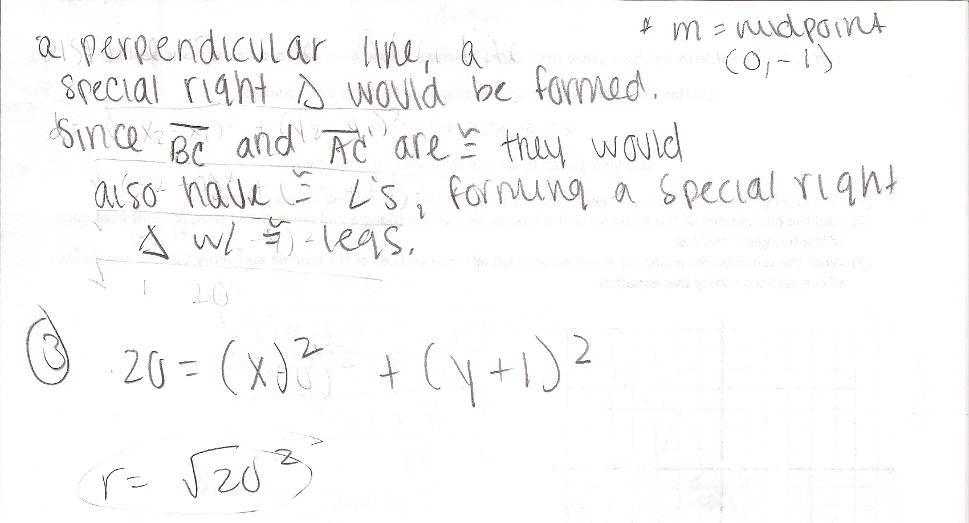 a perpendicular line, a
special right △ would be formed.
* m = midpoint
(0, -1)
Since BC and AC are ≅ they would
also have ≅ ∠'s, forming a special right
△ w/ ≅ legs.
③ 20 = (x)² + (y+1)²
r = √20²